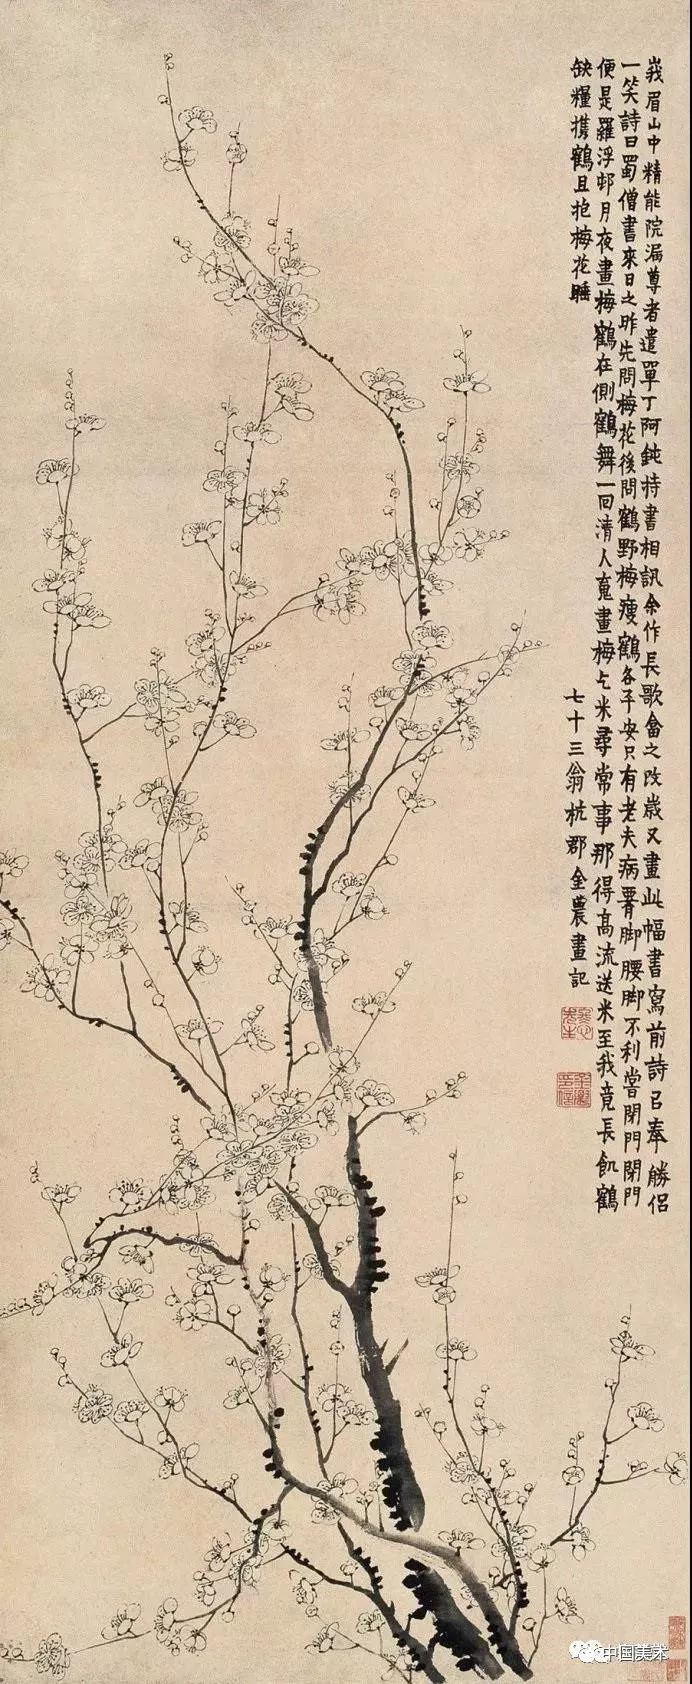 峩眉山中精能院漏尊者遣單丁阿鈍持書相訊余作長歌畣之改歲又畫此幅書寫前詩㠯奉勝侶
一笑詩曰蜀僧書來日之昨先問梅花後問鶴野梅瘦鶴各平安只有老夫病腰脚腰脚不利嘗閉門閉門
便是羅浮邨月夜畫梅鶴在側鶴舞一回清人䰟畫梅乞米尋常事那得高流送米至我竟長飢鶴
缺糧攜鶴且抱梅花睡
七十三翁杭郡金農畫記
中国美术